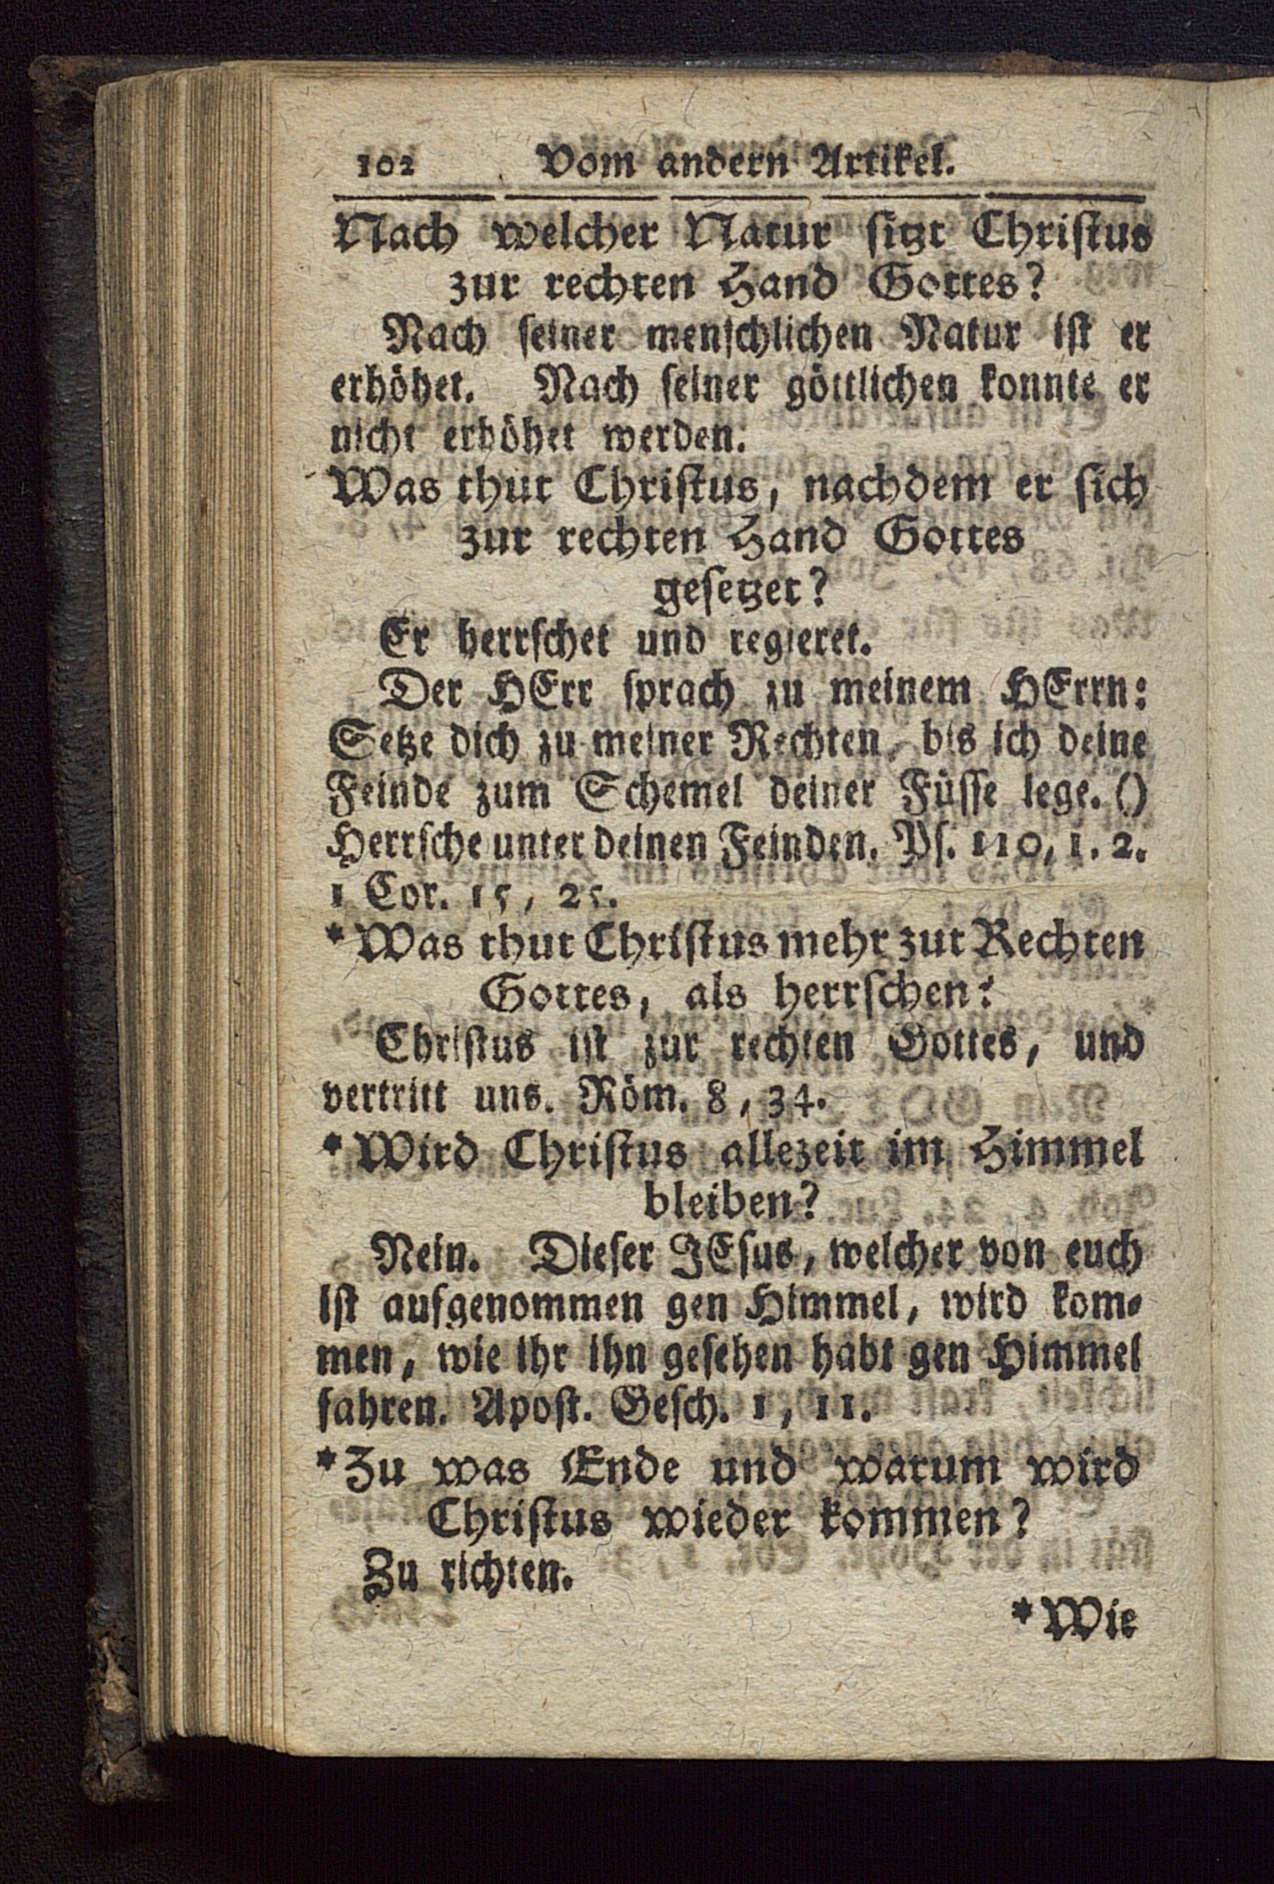 102 Vom andern Artikel.
Nach welcher Natur sitzt Christus
zur rechten Hand Gottes?
Nach seiner menschlichen Natur ist er
erhöhet. Nach seiner göttlichen konnte er
nicht erhöhet werden.
Was thut Christus, nachdem er sich
zur rechten Hand Gottes
gesetzet?
Er herrschet und regieret.
Der HErr sprach zu meinem HErrn:
Setze dich zu meiner Rechten, bis ich deine
Feinde zum Schemel deiner Füsse lege. ()
Herrsche unter deinen Feinden. Ps. 110, 1. 2.
1 Cor. 15, 25.
*Was thut Christus mehr zur Rechten
Gottes, als herrschen?
Christus ist zur rechten Gottes, und
vertritt uns. Röm. 8, 34.
*Wird Christus allezeit im Himmel
bleiben?
Nein. Dieser JEsus, welcher von euch
ist aufgenommen gen Himmel, wird kom-
men, wie ihr ihn gesehen habt gen Himmel
fahren. Apost. Gesch. 1, 11.
*Zu was Ende und warum wird
Christus wieder kommen?
Zu richten.
*Wie